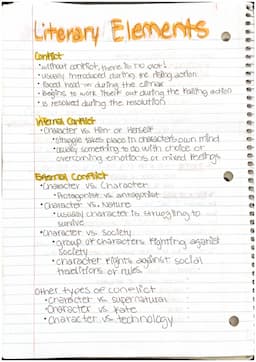 Literary Elements
Conflict
• without conflict, there is no plot!
• usually introduced during the rising action
• faced head on during the climax
• begins to work itself out during the falling action
• is resolved during the resolution
Internal Conflict
• Character vs. Him or Herself
• struggle takes place in characters own mind
• usually something to do with choice or
overcoming emotions or mixed feelings
External Conflict
• Character vs. Character
• Protagonist vs. antagonist
• Character vs. Nature
• usually character is struggling to
survive
• Character vs. Society
• group of characters fighting against
society
• character fights against social
traditions or rules
Other types of conflict
• Character vs. supernatural
• Character vs. Fate
• Character vs. technology